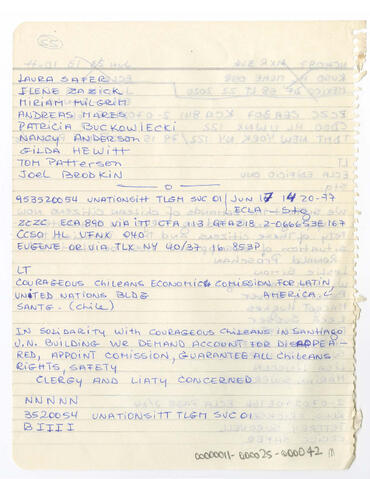 55
LAURA SAFER
ILENE ZAZICK
MIRIAM MILGRIM
ANDREAS MARES
PATRICIA BUCKOWIECKI
NANCY ANDERSON
GILDA HEWITT
TOM PATTERSON
JOEL BRODKIN
953520ZC UNATIONSITT TLGM SVC 01 / JUN 17 14 20-77
ECLA - Stg
ZCZC ECA 890 VIA ITT CFA 113 GFA218 2-066653E167
CCSO HL UFNK 040
EUGENE OR VIA TLX NY 40/37 16 853P
LT
COURAGEOUS CHILEANS ECONOMIC COMISSION FOR LATIN
UNITED NATIONS BLDG AMERICA
SANTG. (Chile)
IN SOLIDARITY WITH COURAGEOUS CHILEANS IN SANTIAGO
U.N. BUILDING WE DEMAND ACCOUNT FOR DISAPPEA-
RED, APPOINT COMISSION, GUARANTEE ALL CHILEANS
RIGHTS, SAFETY
CLERGY AND LIATY CONCERNED
NNNNN
3520054 UNATIONSITT TLGM SVC 01
BIIII
0000011-000025-000042